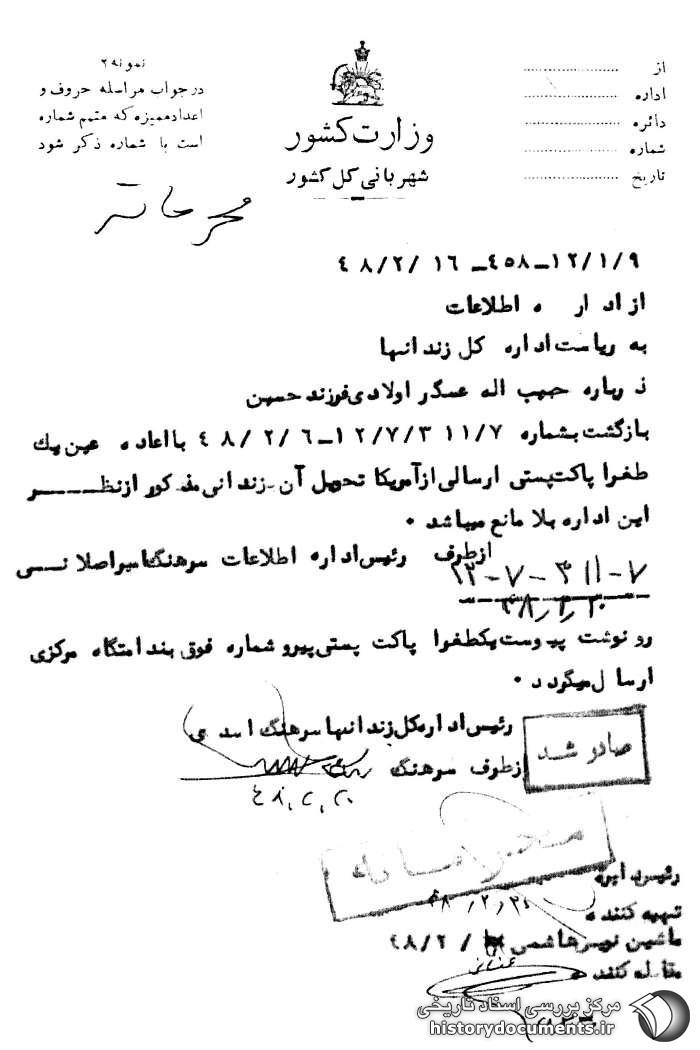 نمونه ۲
در جواب مراسله حروف و
اعداد ممیزه که متمم شماره
است با شماره ذکر شود
وزارت کشور
شهربانی کل کشور
از
اداره
دائره
شماره
تاریخ
محرمانه
۱۲/۱/۹ــ۴۵۸ــ ۱۶ /۴۸/۲
از اداره اطلاعات
به ریاست اداره کل زندانها
درباره حبیب اله عسگر اولادی فرزند حسین
بازگشت بشماره ۱۱/۷ ۱۲/۷/۳ــ۴۸/۲/۶ با اعاده عین یك
طغرا پاکت پستی ارسالی از آمریکا تحویل آن بزندانی مذکور از نظـــــر
این اداره بلا مانع میباشد ۰
از طرف رئیس اداره اطلاعات سرهنگ
۱۲-۷-۳ ۱۱-۷
۴۸/۲/۲۰
رونوشت پیوست یکطغرا پاکت پستی پیرو شماره فوق بندامتگاه مرکزی
ارسال میگردد ۰
رئیس اداره کل زندانها سرهنگ اسدی
از طرف سرهنگ
۴۸،۲،۲۰
صادر شد
محرمانه
رئیس دایره
تهیه کننده
ماشین نویس هاشمی / ۴۸/۲
مقابله کننده
مرکز بررسی اسناد تاریخی
historydocuments.ir